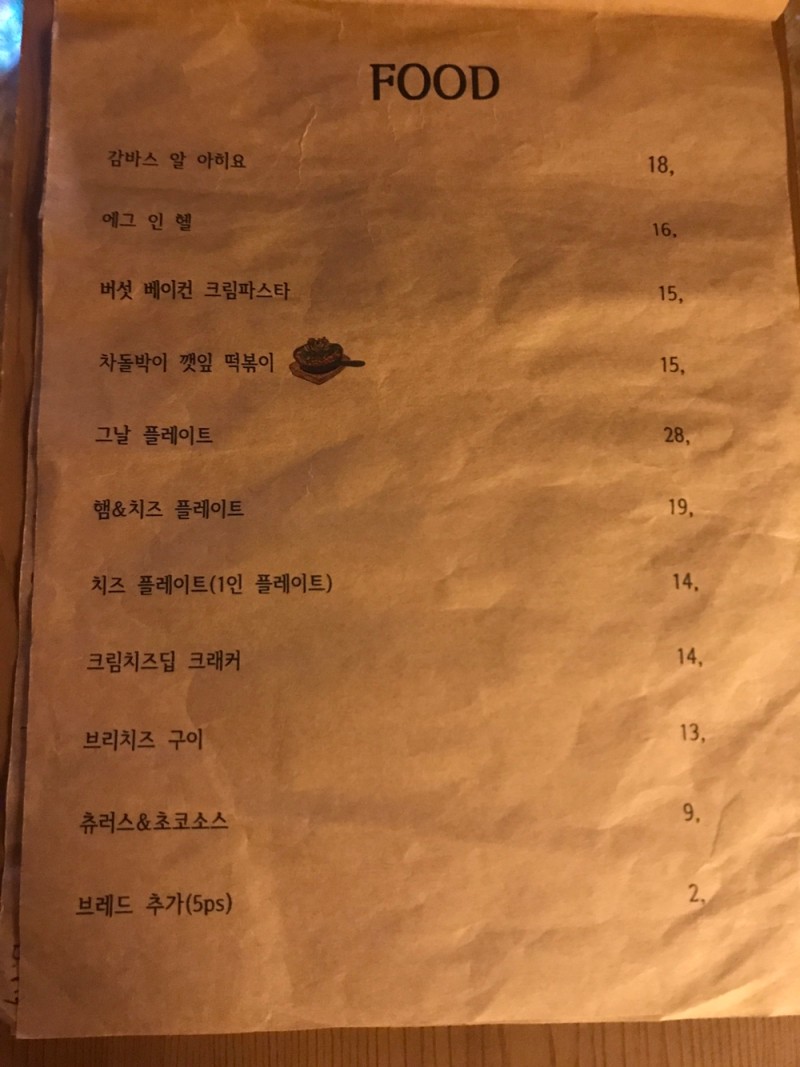 FOOD
감바스 알 아히요 18,
에그 인 헬 16,
버섯 베이컨 크림파스타 15,
차돌박이 깻잎 떡볶이 15,
그날 플레이트 28,
햄&치즈 플레이트 19,
치즈 플레이트(1인 플레이트) 14,
크림치즈딥 크래커 14,
브리치즈 구이 13,
츄러스&초코소스 9,
브레드 추가(5ps) 2,